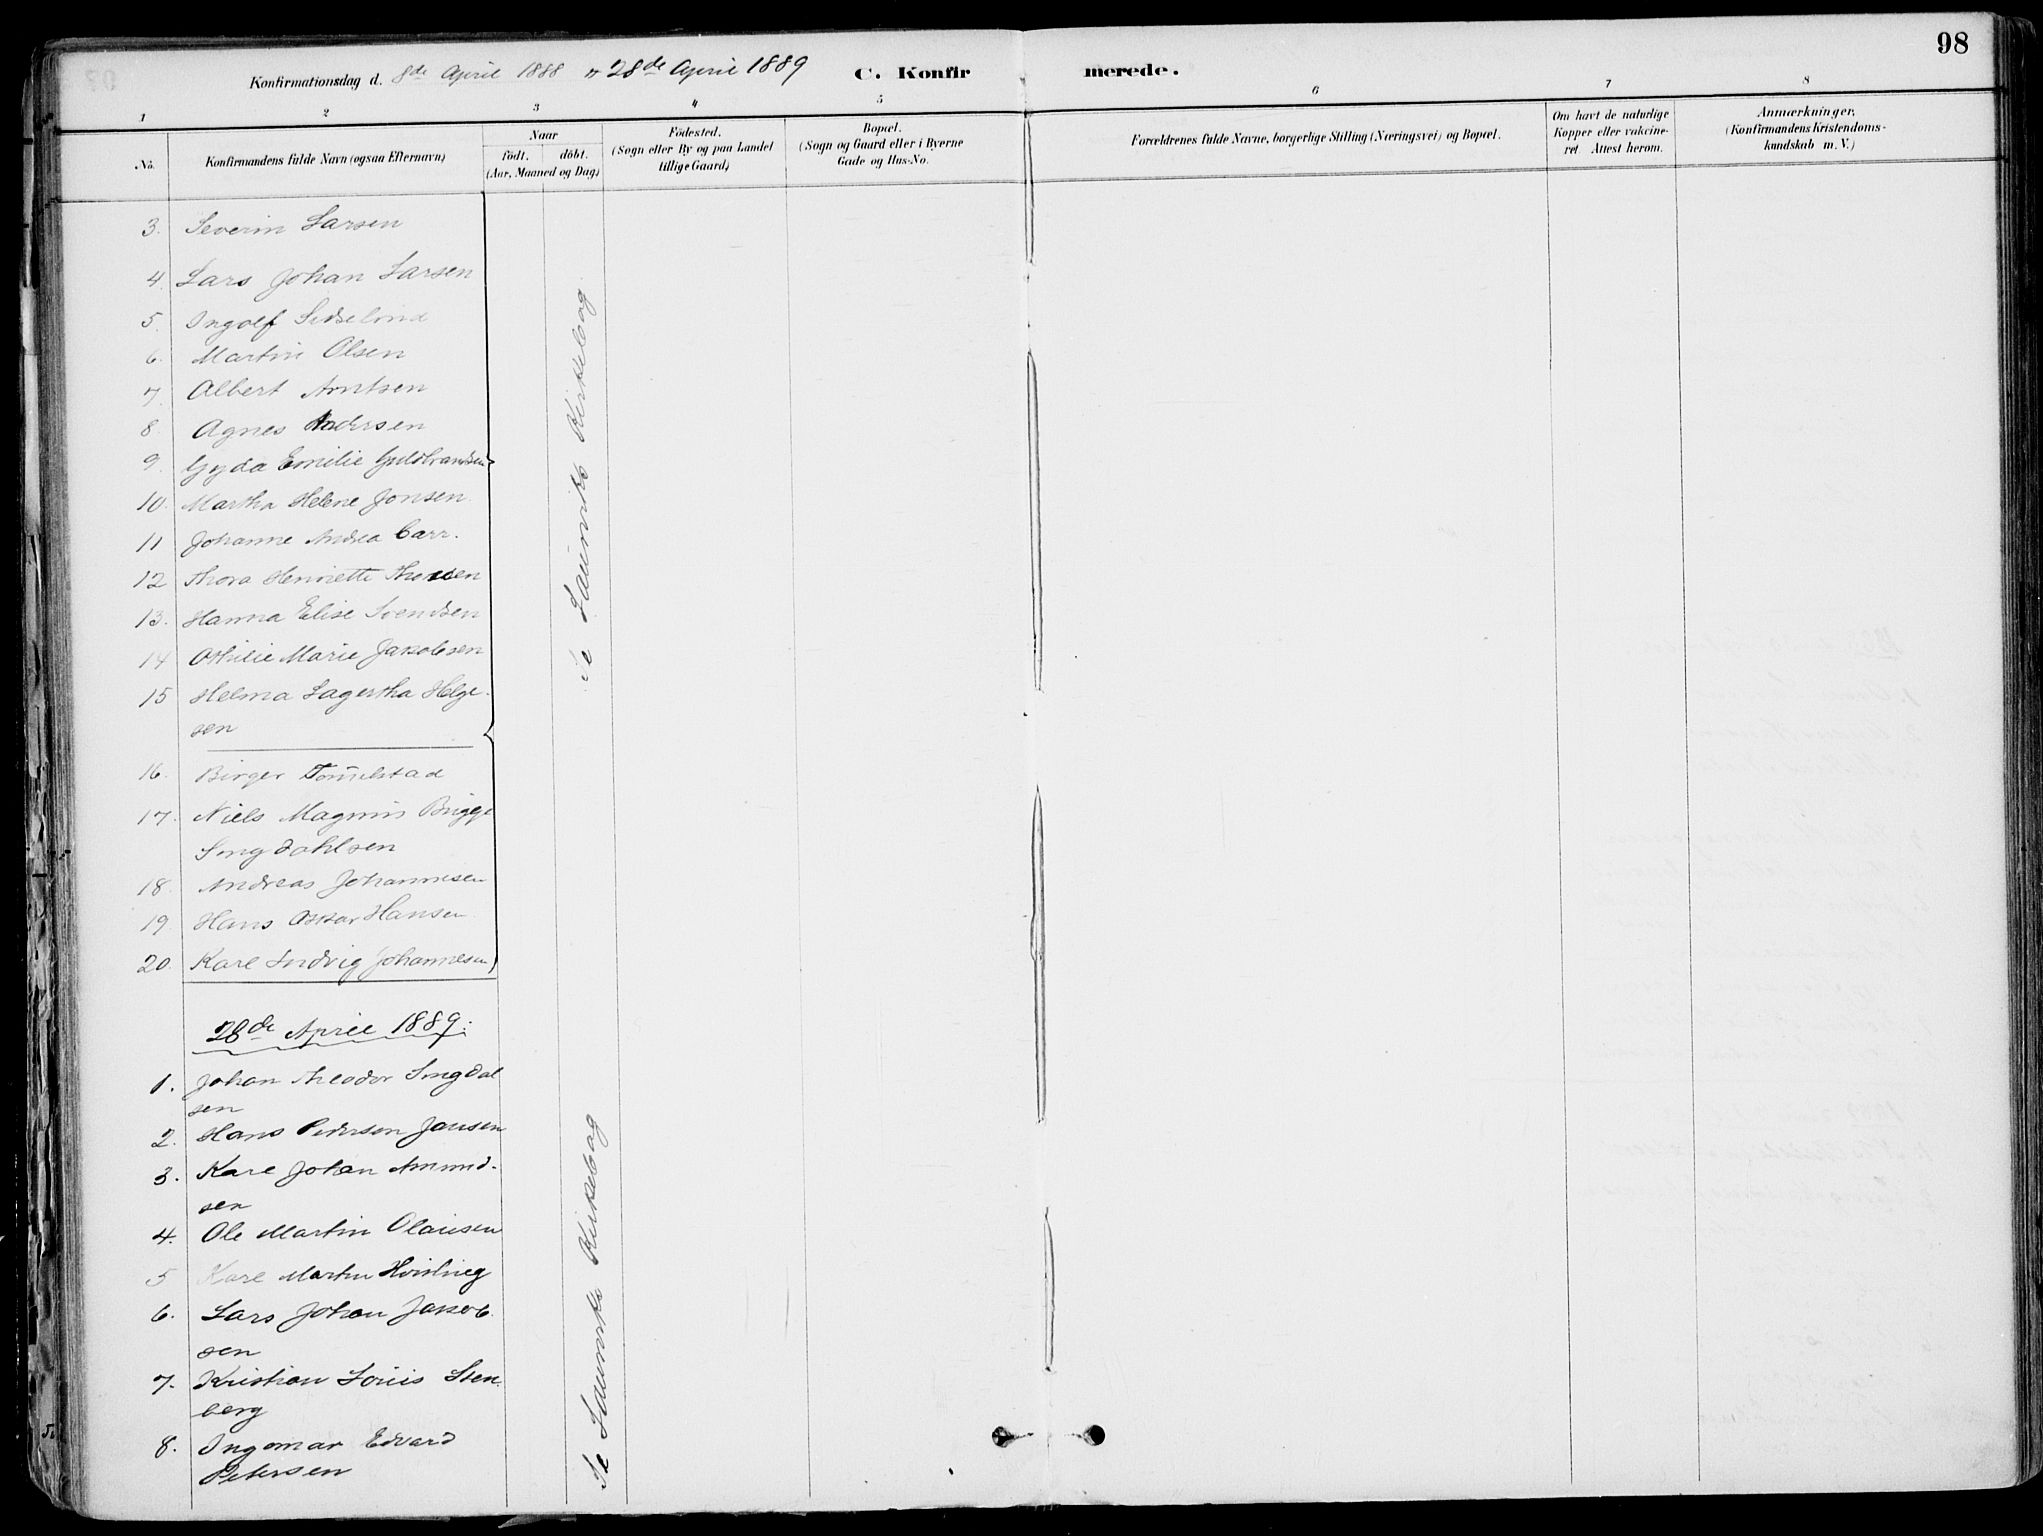 98
Konfirmationsdag d. 8de April 1888 & 28de April 1889 C. Konfirmerede.
1 2 3 4 5 6 7 8
No.
Konfirmandens fulde Navn (ogsaa Efternavn)
Naar
födt. döbt.
(Aar, Maaned og Dag)
Födested.
(Sogn eller By og paa Landet
tillige Gaard)
Bopæl.
(Sogn og Gaard eller i Byerne
Gade og Hus-No.
Forældrenes fulde Navne, borgerlige Stilling (Næringsvei) og Bopæl.
Om havt de naturlige
Kopper eller vakcine-
ret. Attest herom.
Anmærkninger,
(Konfirmandens Kristendoms-
kundskab m. V.)
3. Severin Larsen
4. Lars Johan Larsen
5. Ingolf
6. Martin Olsen
7. Albert Arntsen
8. Agnes Andersen
9. Gyda Emilie Guldbrandsen
10. Martha Helene Jonsen
11 Johanne Andrea Carr.
12 Thora Henriette
13. Hanna Elise Svendsen
14 Othilie Marie Jakobsen
15 Helma Lagertha Helge-
sen
16. Birger
17. Niels Magnus Brigge
Smgdahlsen
18. Andreas Johannesen
19. Hans Oskar Hansen
20. Karl Ludvig Johannesen
Se Laurviks Kirkebog
28de April 1889.
1. Johan Theodor Smgdal
sen
2. Hans Pedersen Jansen
3. Karl Johan Amund-
sen
4. Ole Martin Olausen
5 Karl Martin
6. Lars Johan Jakob
sen
7. Kristian Louis Sten-
berg
8. Ingomar Edvard
Petersen
Se Laurviks Kirkebog